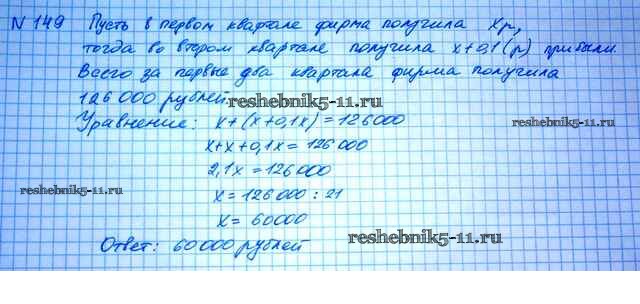 N 149 Пусть в первом квартале фирма получила х р,
тогда во втором квартале получила х+0,1(р) прибыли.
Всего за первые два квартала фирма получила
126 000 рублей
reshebnik5-11.ru
Уравнение: х+(х+0,1х)=126000
reshebnik5-11.ru
х+х+0,1х=126 000
2,1х=126 000
reshebnik5-11.ru
х=126 000 : 21
х= 60000
reshebnik5-11.ru
Ответ: 60 000 рублей